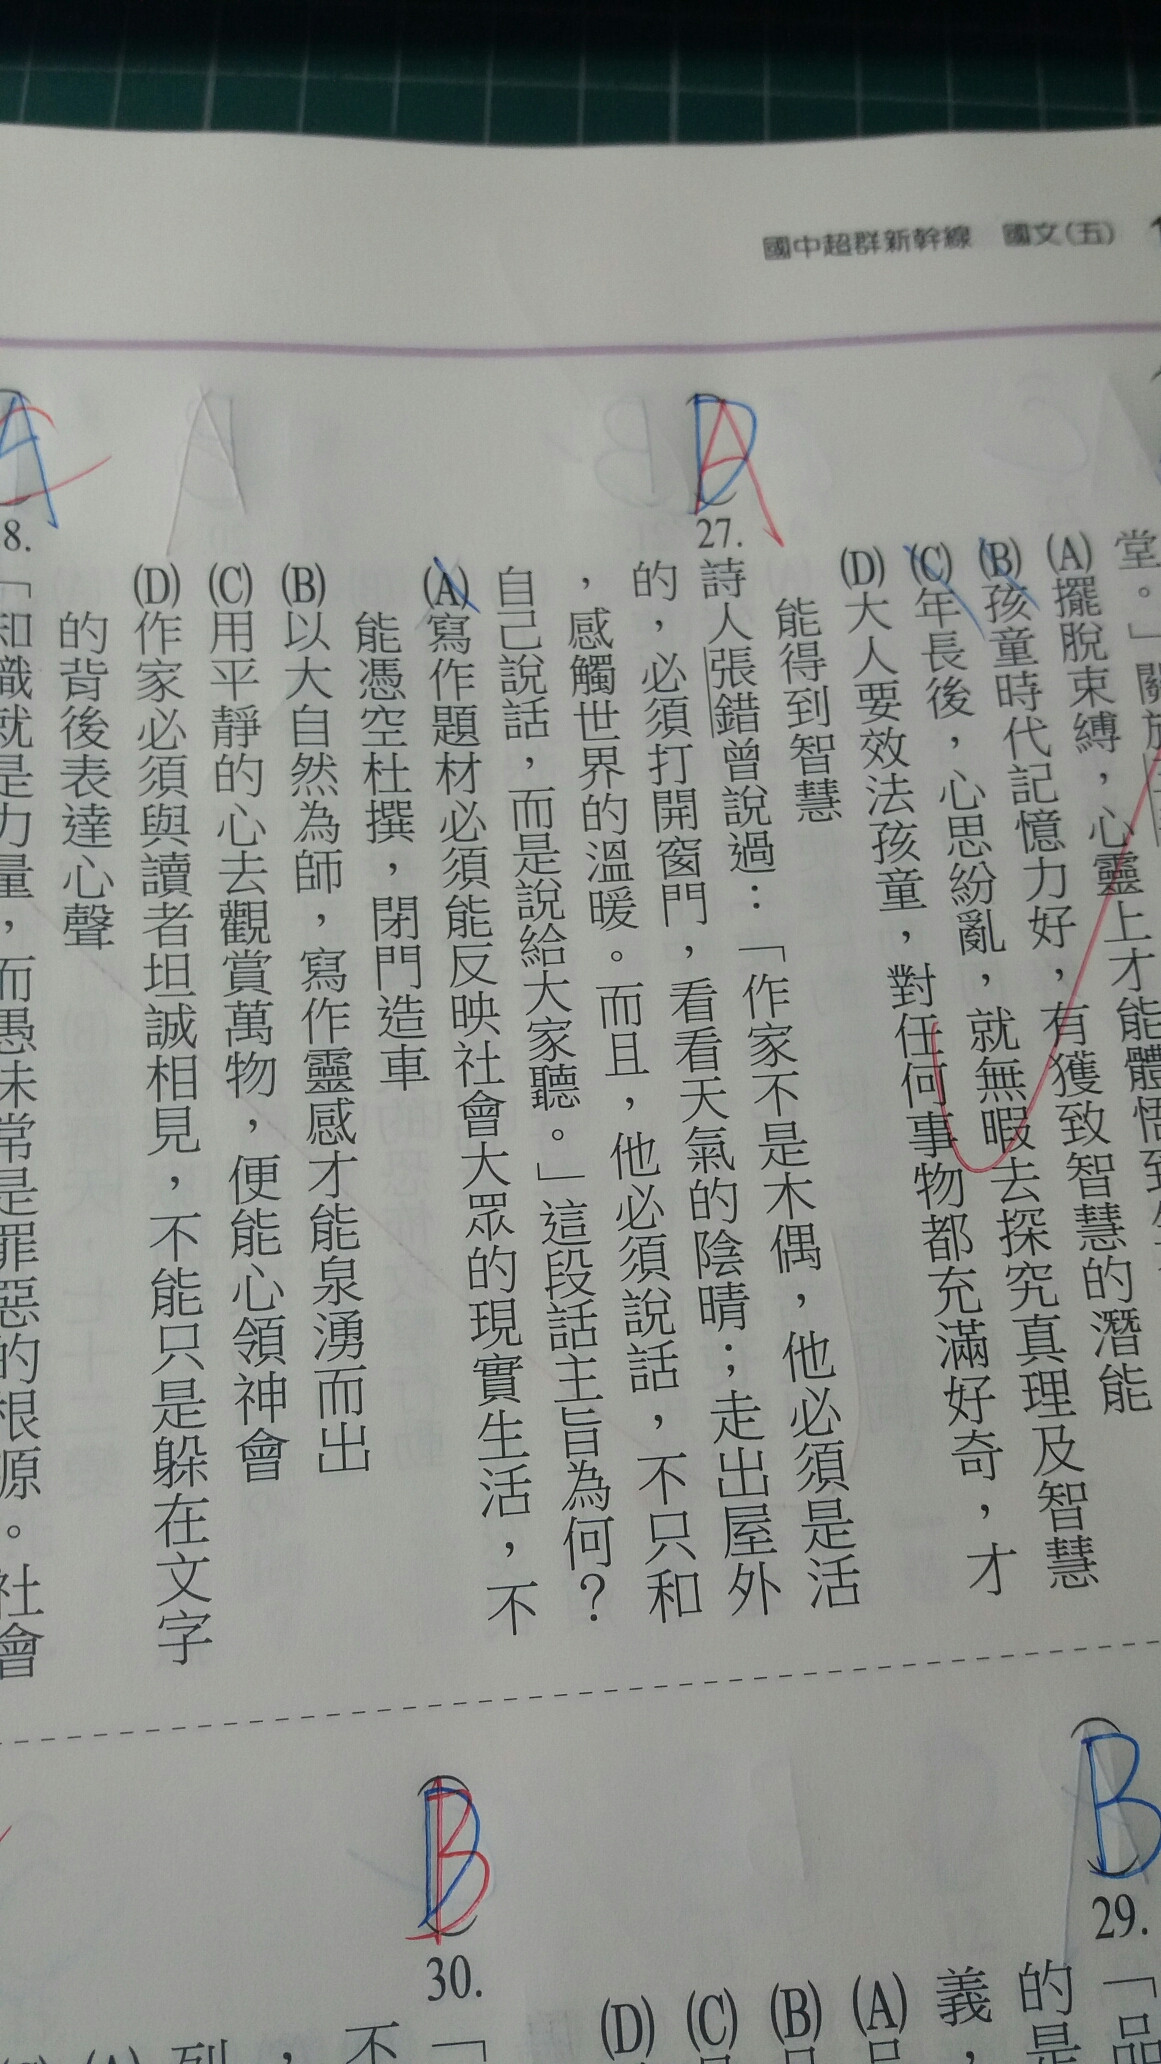 國中超群新幹線 國文(五)
堂。」關於
(A)擺脫束縛,心靈上才能體悟到
(B)孩童時代記憶力好,有獲致智慧的潛能
(C)年長後,心思紛亂,就無暇去探究真理及智慧
(D)大人要效法孩童,對任何事物都充滿好奇,才
能得到智慧
DA
27.
詩人張錯曾說過:「作家不是木偶,他必須是活
的,必須打開窗門,看看天氣的陰晴;走出屋外
,感觸世界的溫暖。而且,他必須說話,不只和
自己說話,而是說給大家聽。」這段話主旨為何?
(A)寫作題材必須能反映社會大眾的現實生活,不
能憑空杜撰,閉門造車
(B)以大自然為師,寫作靈感才能泉湧而出
(C)用平靜的心去觀賞萬物,便能心領神會
(D)作家必須與讀者坦誠相見,不能只是躲在文字
的背後表達心聲
A
8.
「知識就是力量,而愚昧常是罪惡的根源。社會
B
29.
「品
的是
義,
(A)品
(B)品
(C)品
(D)
B
30.
「
不
,
列
(A)